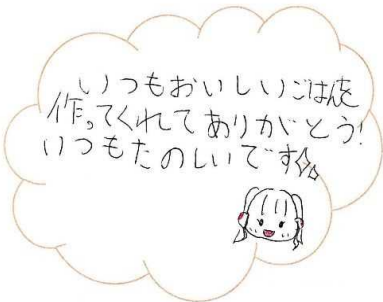 いつもおいしいごはんを
作ってくれてありがとう!
いつもたのしいです✨